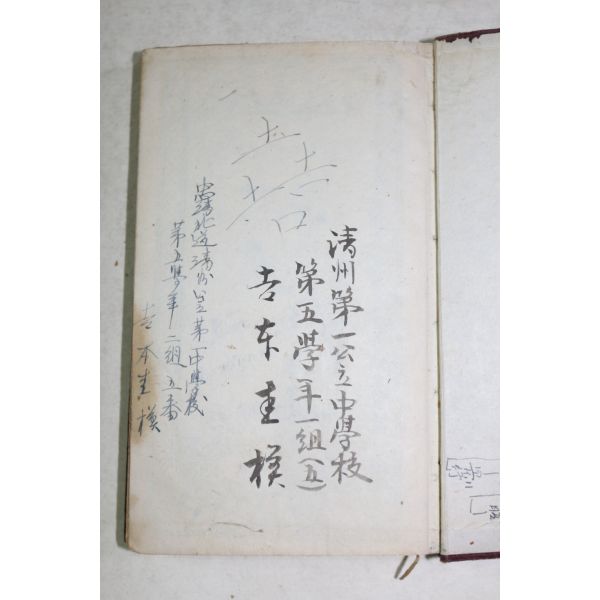 清州第一公立中學校
第五學年一組(五)
吉本圭模
忠淸北道淸州公立第一中學校
第五學年二組五番
吉本圭模
吉